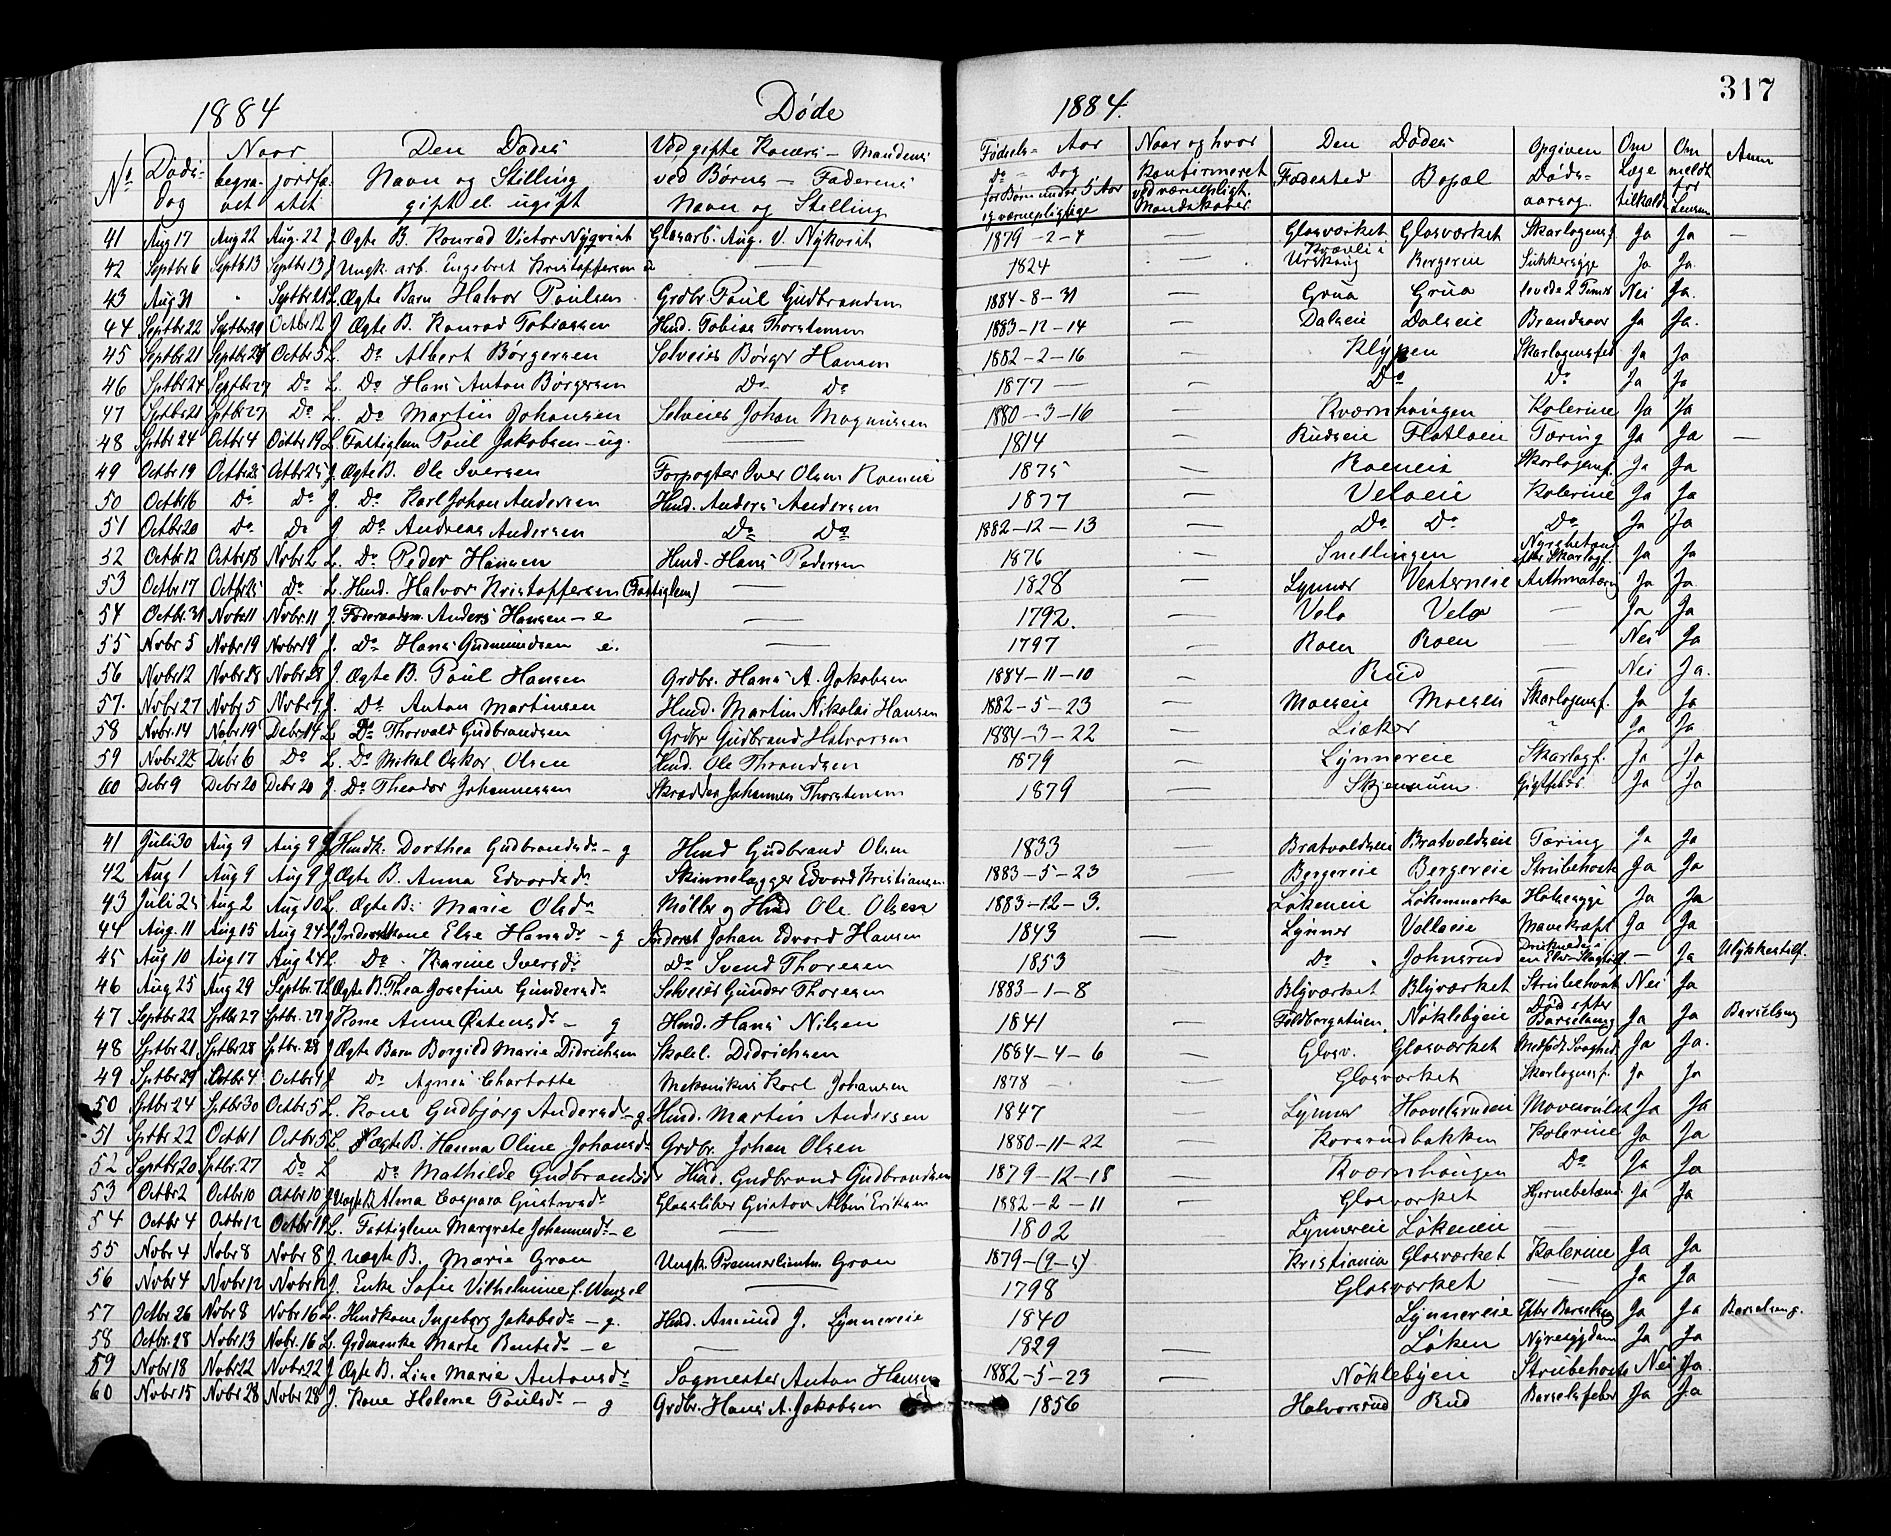 317
1884 Døde 1884.
No Døds- Dag Naar begra- vet jordfæ- stet Den Dødes Navn og Stilling gift el. ugift Ved gifte Koners - Mandens ved Børns - Faderens Navn og Stilling Fødsels- Aar Do - Dag for Børn under 5 Aar og værnepligtige Naar og hvor konfirmeret ved værnepligt. Mandskaber. Den Dødes Fødested Bopæl Opgiven Døds- aarsag. Om Læge tilkaldt Om meldt for Lensm. Anm
41 Aug 17 Aug 22 Aug. 22 J Ægte B. Konrad Victor Nyqvist Glasarb. Aug. V. Nykvist 1879-2-4 — Glasværket Glasværket Skarlagensf. Ja Ja —
42 Septbr 6 Septb 13 Septbr 13 J Ungk. arb. Engebret Kristoffersen — 1824 — Urskoug Bergereie Sukkersyge Ja Ja.
43 Aug 31 " Septbr 21 L Ægte Barn Halvor Poulsen Grdbr. Poul Gudbrandsen 1884-8-31 — Grua Grua levede 2 Timer Nei Ja.
44 Septbr 22 Septbr 29 Octbr 12 J Ægte B. Konrad Tobiassen Hmd. Tobias Thorstensen 1883-12-14 — Dalseie Dalseie Brandsaar Ja Ja.
45 Septbr 21 Septbr 27 Octbr 5 L. Do Albert Børgersen Selveier Børger Hansen 1882-2-16 — Klypen Skarlagensfeb Ja Ja
46 Sptbr 24 Septbr 27 Do L. Do Hans Anton Børgersen Do Do 1877 — — Do Do Ja Ja
47 Sptbr 21 Sptbr 27 Do L. Do Martin Johansen Selveier Johan Magnussen 1880-3-16 — Kværnhaugen Kolerine Ja Ja
48 Sptbr 24 Octbr 4 Octbr 19 L Fattiglem Poul Jakobsen - ug. — 1814 — Rudseie Flatlaeie Tæring Ja Ja —
49 Octbr 19 Octbr 25 Octbr 25 J. Ægte B. Ole Iversen Forpagter Iver Olsen Roeneie 1875 — Roeneie Skarlagensf. Ja Ja
50 Octbr 16 Do Do J. Do Karl Johan Andersen Hmd. Anders Andersen 1877 — Veloeie Kolerine Ja Ja
51 Octbr 20 Do Do J Do Andreas Andersen Do Do 1882-12-13 — Do Do Do Ja Ja
52 Octbr 12 Octbr 18 Novbr 2 L. Do Peder Hansen Hmd. Hans Pedersen 1876 — Snellingen efter Skarlagf. Ja Ja
53 Octbr 17 Octbr 25 Do L. Hmd. Halvor Kristoffersen (Fattiglem) — 1828 — Lynner Vesterneie Ja Ja
54 Octbr. 31 Novbr 11 Novbr. 11 J. Føderaadsm. Anders Hansen - e — 1792. — Velo Velo — Ja Ja
55 Novbr 5 Novbr 19 Novbr 19 J. Do Hans Gudmundsen e. — 1797 — Roen Roen Nei Ja
56 Novbr 12 Novbr 28 Novbr 28 J. Ægte B. Poul Hansen Grdbr. Hans A. Jakobsen 1884-11-10 — Rud — Nei Ja.
57. Novbr 27 Novbr 5 Novbr 9 J. Do Anton Martinsen Hmd. Martin Nikolai Hansen 1882-5-23 — Moeseie Moeseie Skarlagensf. Ja Ja
58 Novbr. 14 Novbr 19 Decbr 14 L Do Thorvald Gudbrandsen Grdbr Gudbrand Halvorsen 1884-3-22 — Liaker " Ja Ja
59 Novbr 22 Decbr 6 Do L. Do Mikal Oskar Olsen Hmd. Ole Throndsen 1879 — Lynnereie Skarlagf. Ja Ja
60 Debr 9 Debr 20 Debr 20 J Do Theodor Johannessen Skrædder Johannes Thorstensen 1879 — Skjensrum Gigtfeber. Ja Ja
41 Juli 30 Aug 9 Aug 9 J Hmdk. Dorthea Gudbrandsdr - g Hmd Gudbrand Olsen 1833 — Bratvoldseie Bratvoldseie Tæring Ja Ja
42 Aug 1 Aug 9 Aug 9 J Ægte B. Anna Edvardsdr Skinnelægger Edvard Kristiansen 1883-5-23 — Bergereie Bergereie Strubehoste Ja Ja
43 Juli 25 Aug 2 Aug 10 L. Ægte B. Marie Olsdr Møller og Hmd Ole Olsen 1883-12-3. — Løkeneie Løkensmarka Halssyge Ja Ja
44 Aug. 11 Aug 15 Aug 24 L Inderstkone Else Hansdr - g Inderst Johan Edvard Hansen 1843 — Lynner Volloeie Mavekræft Ja Ja
45 Aug 10 Aug 17 Aug 24 L Do Karine Iversdr Do Svend Thoresen 1853 — Do Johnsrud — Ja Ulykkestilf.
46 Aug 25 Aug 29 Septbr. 7 L Ægte B. Thea Josefine Gundersdr Selveier Gunder Thoresen 1883-1-8 — Blyværket Blyværket Strubehoste Nei Ja
47 Septbr 22 Sptbr 27 Sptbr. 27 J Kone Anne Østensdr - g Hmd. Hans Nilsen 1841 — Nøklebyeie Død efter Barselseng Ja Ja Barselseng
48 Sptbr 21 Sptbr 28 Sptbr. 28 J Ægte Barn Borgild Marie Didrichsen Skolel. Didrichsen 1884-4-6 — Glasv. Glasværket Medfødt Svaghed Ja Ja.
49 Sptbr 29 Octbr 4 Octbr 4 J Do Agnes Charlotte Mekanikus Karl Johansen 1878 - — Glasværket Skarlagensf. Ja Ja
50 Sptbr 24 Sptbr 30 Octbr. 5 L. Kone Gudbjørg Andersdr - g Hmd. Martin Andersen 1847 — Lynner Haavelsrudeie Ja Ja
51 Sptbr 22 Octbr 1 Octbr. 5 L. Ægte B. Hanna Oline Johansdr Grdbr. Johan Olsen 1880-11-22 — Korsrudbakken Kolerine Ja Ja
52 Septbr 20 Sptbr. 27 Do L Do Mathilde Gudbrandsdr Hmd. Gudbrand Gudbrandsen 1879-12-18 — Kværnhaugen Do Ja Ja
53 Octbr 2 Octbr 10 Octbr 10 J Uægte B. Alma Caspara Gustavsdr Glassliber Gustav Albin Eriksen 1882-2-11 — Glasværket Hjernebetænd. Ja Ja
54 Octbr 4 Octbr 12 Octbr 11 L. Fattiglem Margrete Johannesdr - e — 1802 Lynnereie Løkeneie —
55 Novbr 4 Novbr 8 Novbr 8 J Uægte B. Marie Gran Ungk. Premierlieutn. Gran 1879-(9-5) — Kristiania Glasværket Kolerine Ja Ja
56 Novbr 4 Novbr 12 Novbr 12 J. Enke Sofie Vilhelmine f. Wenzel — 1798 Glasværket — Ja Ja
57 Octbr 26 Novbr 8 Novbr 16 L. Hmdkone Ingeborg Jakobsdr - g. Hmd. Amund J. Lynnereie 1840 Lynnereie Efter Barselseng Ja Ja Barselseng.
58 Octbr. 28 Novbr 13 Novbr. 16 L. Grdmenke Marte Bentsdr - e — 1829 — Løken Nyresygdom Ja Ja
59 Novbr 18 Novbr 22 Novbr 22 J Ægte B. Lise Marie Antonsdr Sagmester Anton Hansen 1882-5-23 — Nøklebyeie Strubehoste Nei Ja.
60 Novbr 15 Novbr 28 Novbr 28 J. Kone Helene Poulsdr - g Grdbr. Hans A. Jakobsen 1856 — Halvorsrud Rud Barselsfeber Ja Ja